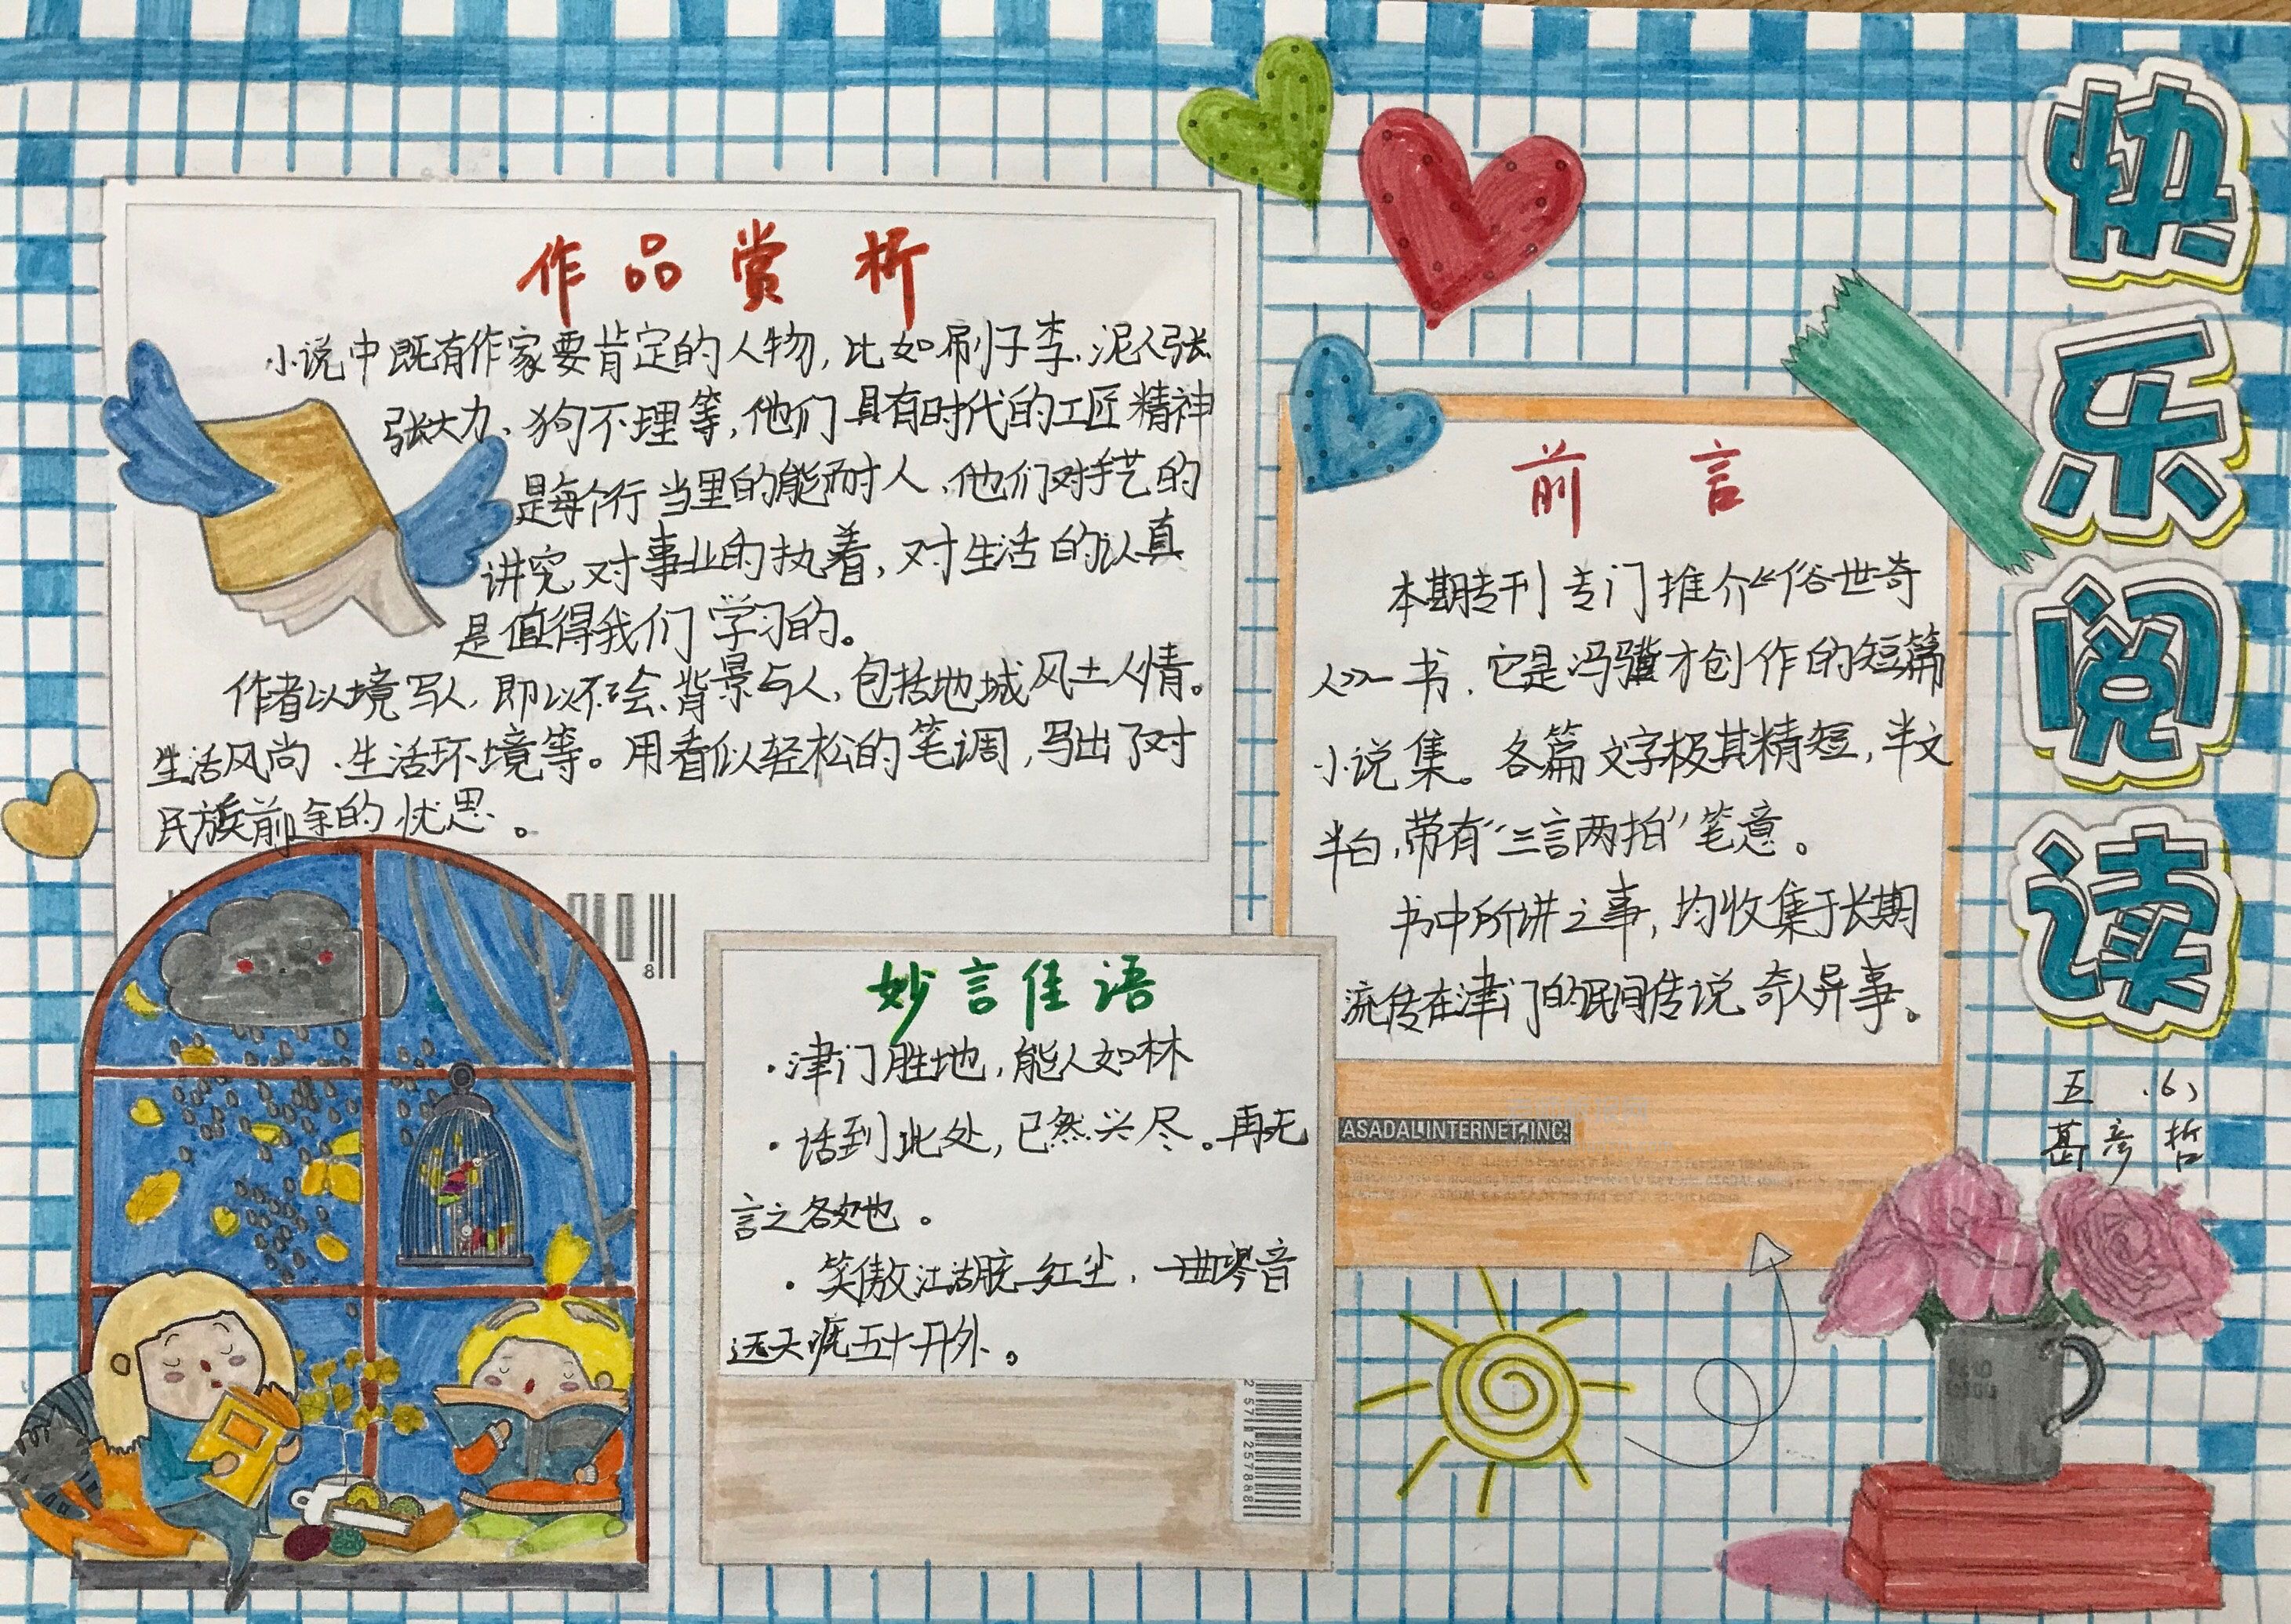 快乐阅读
五（6）
作品赏析
小说中既有作家要肯定的人物，比如刷子李、泥人张
张大力、狗不理等，他们具有时代的工匠精神
是每个行当里的能耐人，他们对手艺的
讲究对事业的执着，对生活的认真
是值得我们学习的。
作者以境写人，即以不绘背景与人，包括地域风土人情。
生活风尚、生活环境等。用看似轻松的笔调，写出了对
民族前途的忧思。
前言
本期专刊专门推介《俗世奇
人》一书，它是冯骥才创作的短篇
小说集。各篇文字极其精短，半文
半白，带有“三言两拍”笔意。
书中所讲之事，均收集于长期
流传在津门的民间传说、奇人异事。
妙言佳语
·津门胜地，能人如林
·话到此处，已然兴尽。再无
言之
·笑傲江湖 红尘，一曲琴音
远天涯五十开外。
ASADAL INTERNET, INC.
8
2 571 257888